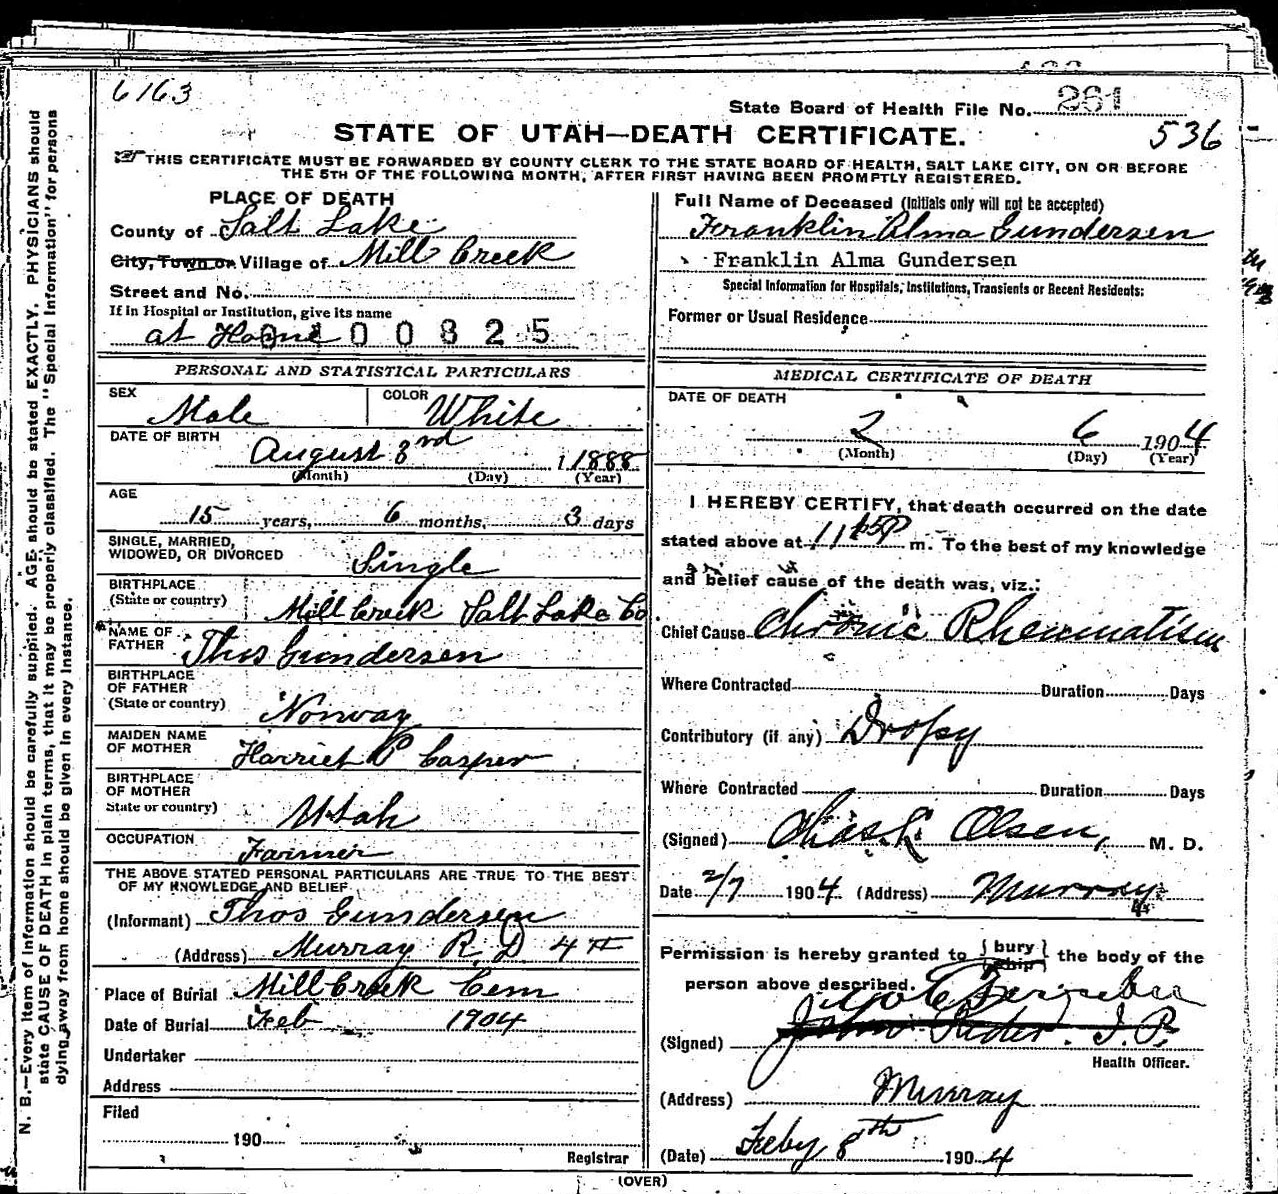 6163
State Board of Health File No. 261
STATE OF UTAH—DEATH CERTIFICATE.
536
THIS CERTIFICATE MUST BE FORWARDED BY COUNTY CLERK TO THE STATE BOARD OF HEALTH, SALT LAKE CITY, ON OR BEFORE
THE 5TH OF THE FOLLOWING MONTH, AFTER FIRST HAVING BEEN PROMPTLY REGISTERED.
N. B.—Every item of information should be carefully supplied. AGE should be stated EXACTLY. PHYSICIANS should
state CAUSE OF DEATH in plain terms, that it may be properly classified. The "Special Information" for persons
dying away from home should be given in every instance.
PLACE OF DEATH
County of Salt Lake
City, Town or Village of Mill Creek
Street and No.
If in Hospital or Institution, give its name
at Home 0 0 8 2 5
PERSONAL AND STATISTICAL PARTICULARS
SEX Male COLOR White
DATE OF BIRTH
August 3rd 1888
(Month) (Day) (Year)
AGE
15 years, 6 months, 3 days
SINGLE, MARRIED,
WIDOWED, OR DIVORCED Single
BIRTHPLACE
(State or country) Mill Creek Salt Lake Co
NAME OF
FATHER Thos Gundersen
BIRTHPLACE
OF FATHER
(State or country) Norway
MAIDEN NAME
OF MOTHER Harriet P Casper
BIRTHPLACE
OF MOTHER
State or country) Utah
OCCUPATION Farmer
THE ABOVE STATED PERSONAL PARTICULARS ARE TRUE TO THE BEST
OF MY KNOWLEDGE AND BELIEF
(Informant) Thos Gundersen
(Address) Murray R. D 4th
Place of Burial Mill Creek Cem
Date of Burial Feb 1904
Undertaker
Address
Filed
190
Registrar
Full Name of Deceased (Initials only will not be accepted)
Franklin Alma Gundersen
Franklin Alma Gundersen
Special Information for Hospitals, Institutions, Transients or Recent Residents:
Former or Usual Residence
MEDICAL CERTIFICATE OF DEATH
DATE OF DEATH
2 6 1904
(Month) (Day) (Year)
I HEREBY CERTIFY, that death occurred on the date
stated above at 11 P m. To the best of my knowledge
and belief cause of the death was, viz.:
Chief Cause Chronic Rheumatism
Where Contracted Duration Days
Contributory (if any) Dropsy
Where Contracted Duration Days
(Signed) Chas L. Olsen, M. D.
Date 2/7 1904 (Address) Murray
Permission is hereby granted to { bury ship } the body of the
person above described.
(Signed) John J. P.
Health Officer.
(Address) Murray
(Date) Feby 8th 1904
(OVER)